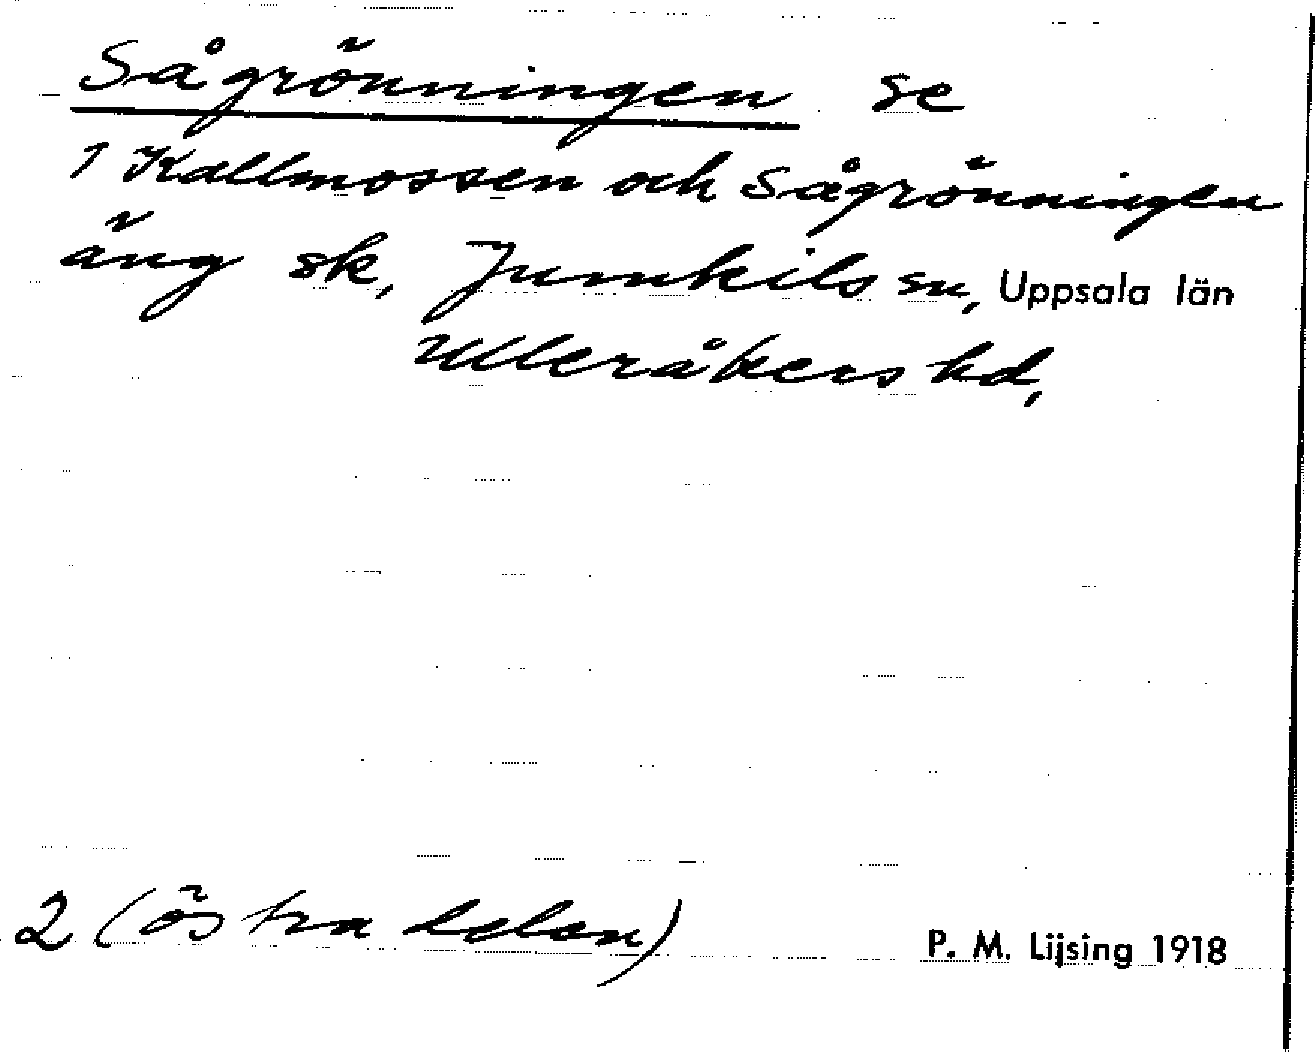 Sågrönningen se
1 Kallmossen och Sågrönningen
äng sk, Jumkils sn, Uppsala län
Ulleråkers hd,
2 (östra delen)
P. M. Lijsing 1918